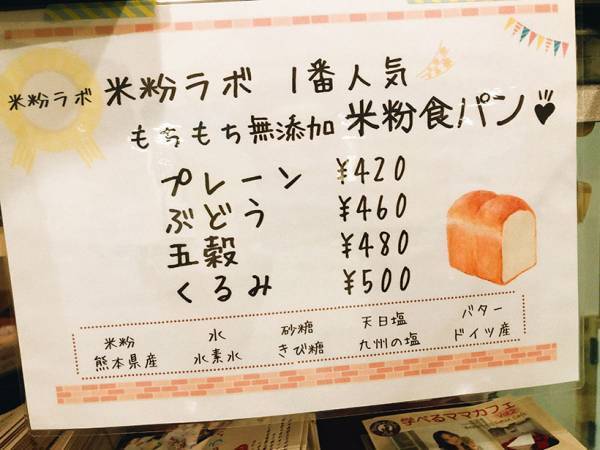 米粉ラボ
米粉ラボ 1番人気
もちもち無添加 米粉食パン
プレーン ¥420
ぶどう ¥460
五穀 ¥480
くるみ ¥500
米粉 水 砂糖 天日塩 バター
熊本県産 水素水 きび糖 九州の塩 ドイツ産
学べるママカフェ